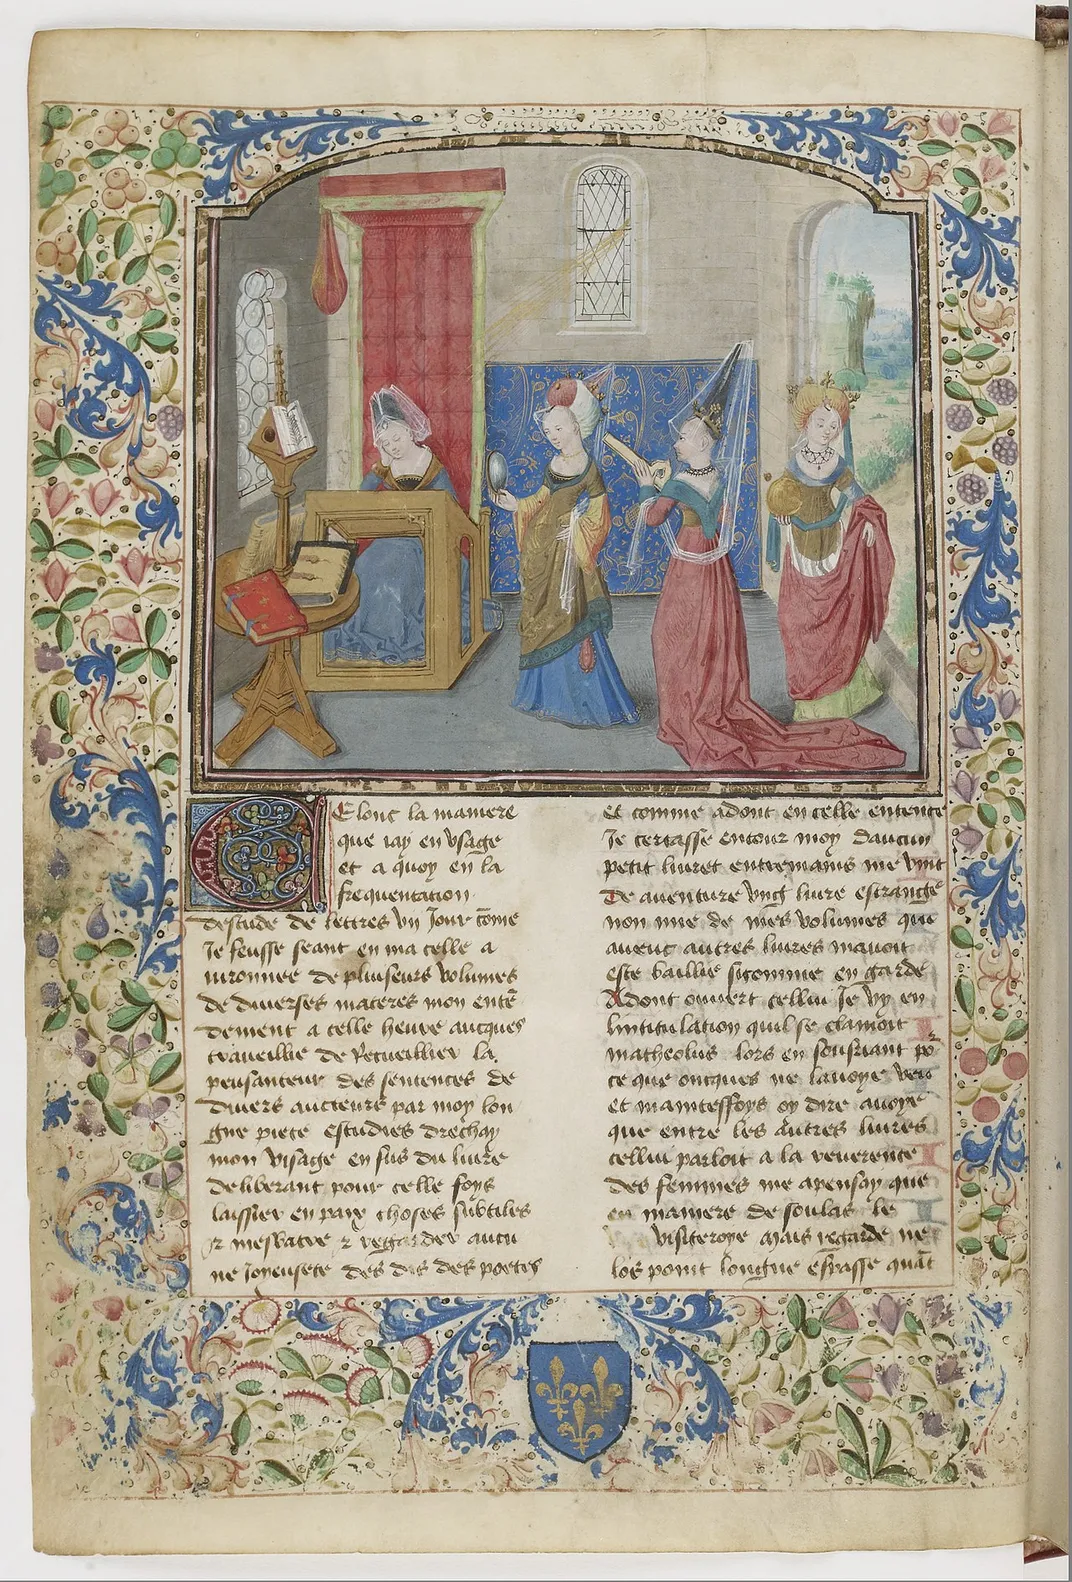 Selonc la maniere
que iay en vsage
et a quoy en la
frequentation
destude de lettres vn Jour cōme
Je feusse seant en ma celle a
uironnee de pluiseurs volumes
de diuerses materes mon entē
dement a celle heure aucques
traueillie de Recueillier la
pensanteur des sentences de
diuers aucteurs par moy lon
gue piece estudies drechay
mon visage en sus du liure
deliberant pour celle foys
laissier en paix choses subtiles
et mesbatre et regarder aucu
ne Joyeusete des dis des poetes
Et comme adont en celle entente
Je cercasse entour moy daucun
petit liuret entremains me vynt
De auenture vng liure estrange
non mie de mes volumes que
auenc autres liures mauoit
este baillie sicomme en garde
Adont ouuert cellui Je vy en
lintitulation quil se clamoit
matheolus lors en sousriant po
ce que oncques ne lauoye veu
et maintesfoys oy dire auoye
que entre les autres liures
cellui parloit a la reuerence
des femmes me apensay que
en maniere de soulas le
visiteroye Mais regarde ne
los point longue espasse quāt